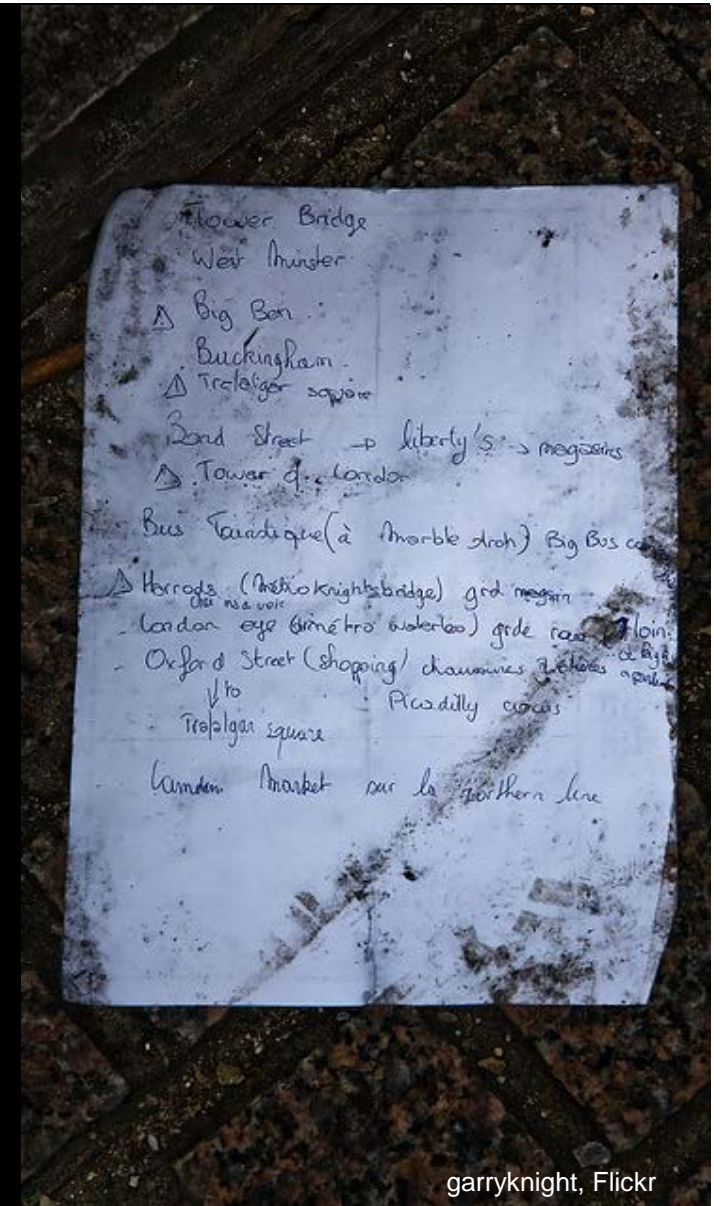 Tower Bridge
West Minster
⚠ Big Ben
Buckingham
⚠ Trafalgar square
Bond Street → liberty's → magasins
⚠ Tower of London
Bus Touristique (à Marble Arch) Big Bus
⚠ Harrods (métro knightsbridge) grd magasin
- London eye (métro waterloo) grde loin
- Oxford Street (shopping) chaussures
↓ to
Picadilly circus
Trafalgar square
Camden Market sur la northern line
garryknight, Flickr